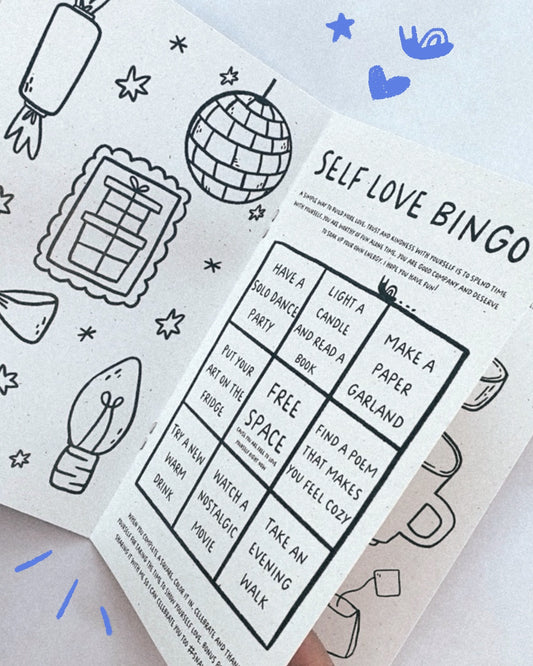 SELF LOVE BINGO
A SIMPLE WAY TO BUILD MORE LOVE, TRUST AND KINDNESS WITH YOURSELF IS TO SPEND TIME
WITH YOURSELF. YOU ARE WORTHY OF FUN ALONE TIME. YOU ARE GOOD COMPANY AND DESERVE
TO SOAK UP YOUR OWN ENERGY. I HOPE YOU HAVE FUN!
HAVE A
SOLO DANCE
PARTY
LIGHT A
CANDLE
AND READ A
BOOK
MAKE A
PAPER
GARLAND
PUT YOUR
ART ON THE
FRIDGE
FREE
SPACE
CAUSE YOU ARE FREE TO LOVE
YOURSELF RIGHT NOW
FIND A POEM
THAT MAKES
YOU FEEL COZY
TRY A NEW
WARM
DRINK
WATCH A
NOSTALGIC
MOVIE
TAKE AN
EVENING
WALK
WHEN YOU COMPLETE A SQUARE, COLOR IT IN, CELEBRATE AND THANK
YOURSELF FOR TAKING THE TIME TO SHOW YOURSELF LOVE. BONUS
SHARING IT WITH ME SO I CAN CELEBRATE YOU TOO